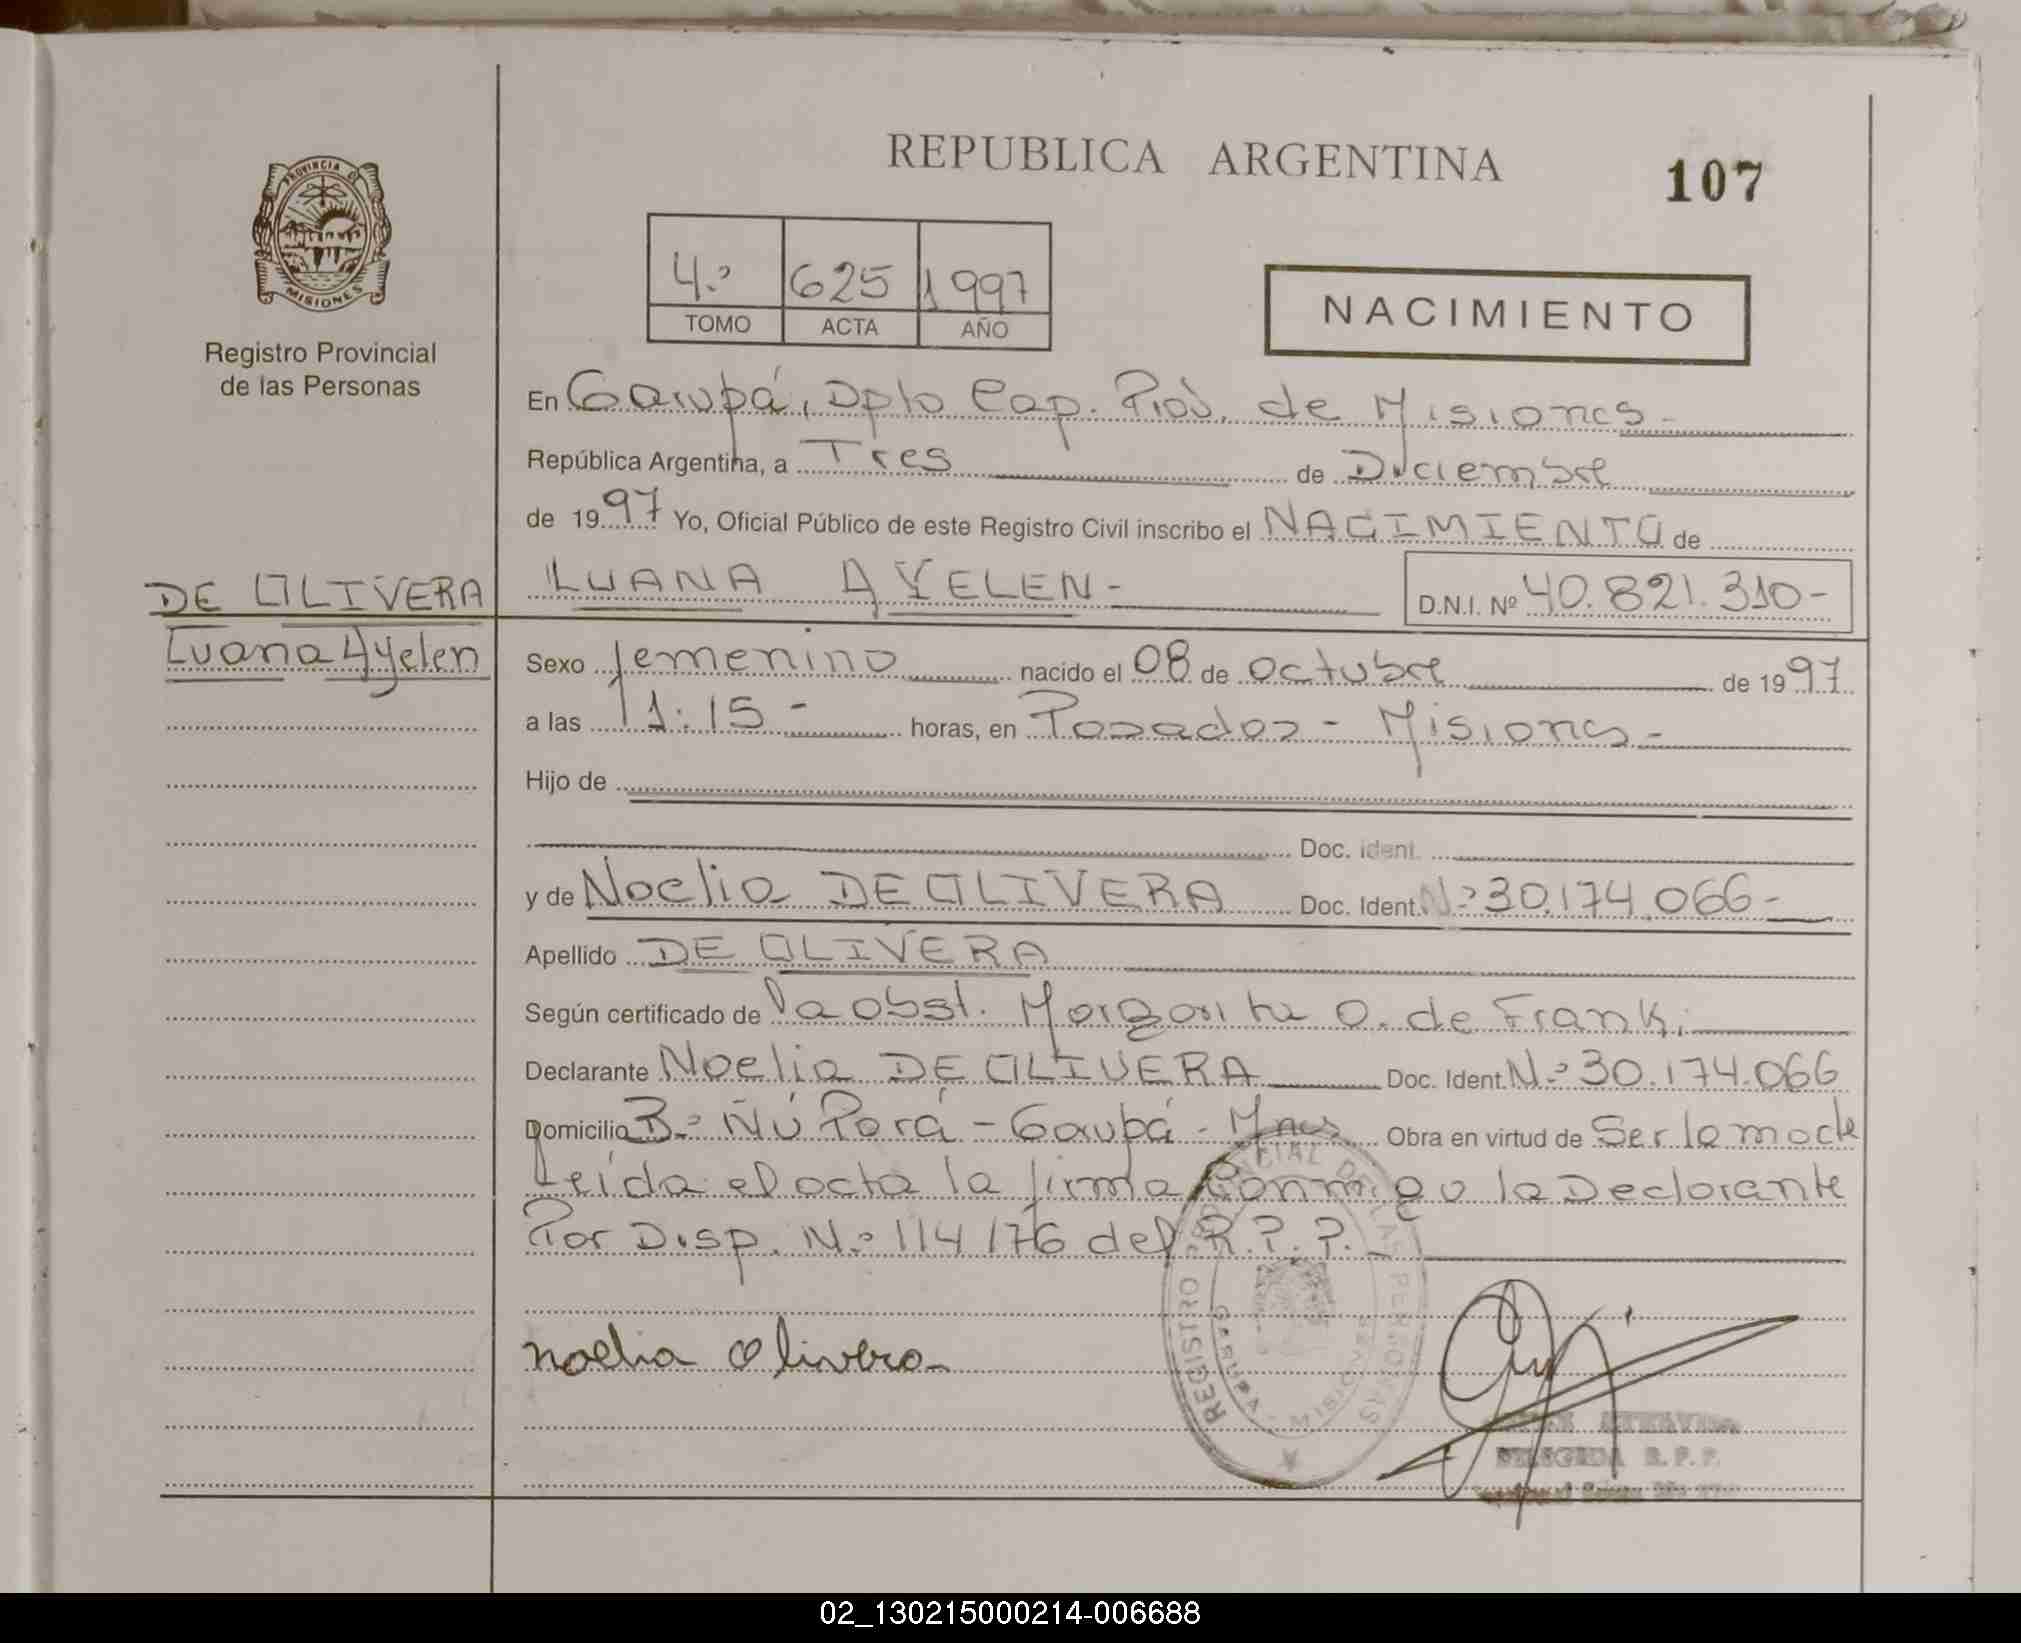 REPUBLICA ARGENTINA
107
PROVINCIA D
MISIONES
Registro Provincial
de las Personas
4.º 625 1997
TOMO ACTA AÑO
NACIMIENTO
En Garupá, Dpto Cap. Prov. de Misiones -
República Argentina, a Tres de Diciembre
de 1997 Yo, Oficial Público de este Registro Civil inscribo el NACIMIENTO de
DE OLIVERA
Luana Ayelen
LUANA AYELEN -
D.N.I. Nº 40.821.310-
Sexo femenino nacido el 08 de octubre de 1997
a las 11:15 - horas, en Posadas - Misiones -
Hijo de
Doc. ident.
y de Noelia DE OLIVERA Doc. Ident. Nº 30.174.066-
Apellido DE OLIVERA
Según certificado de la obst. Margarita O. de Frank.
Declarante Noelia DE OLIVERA Doc. Ident. Nº 30.174.066
Domicilio Bº Ñú Porá - Garupá - Mnes Obra en virtud de Ser la madre
Leida el acta la firma Conmigo la Declarante
Por Disp. Nº 114/76 del R.P.P.
REGISTRO PROVINCIAL DE LAS PERSONAS
MISIONES
noelia Olivera
DELEGADA R.P.P.
02_130215000214-006688